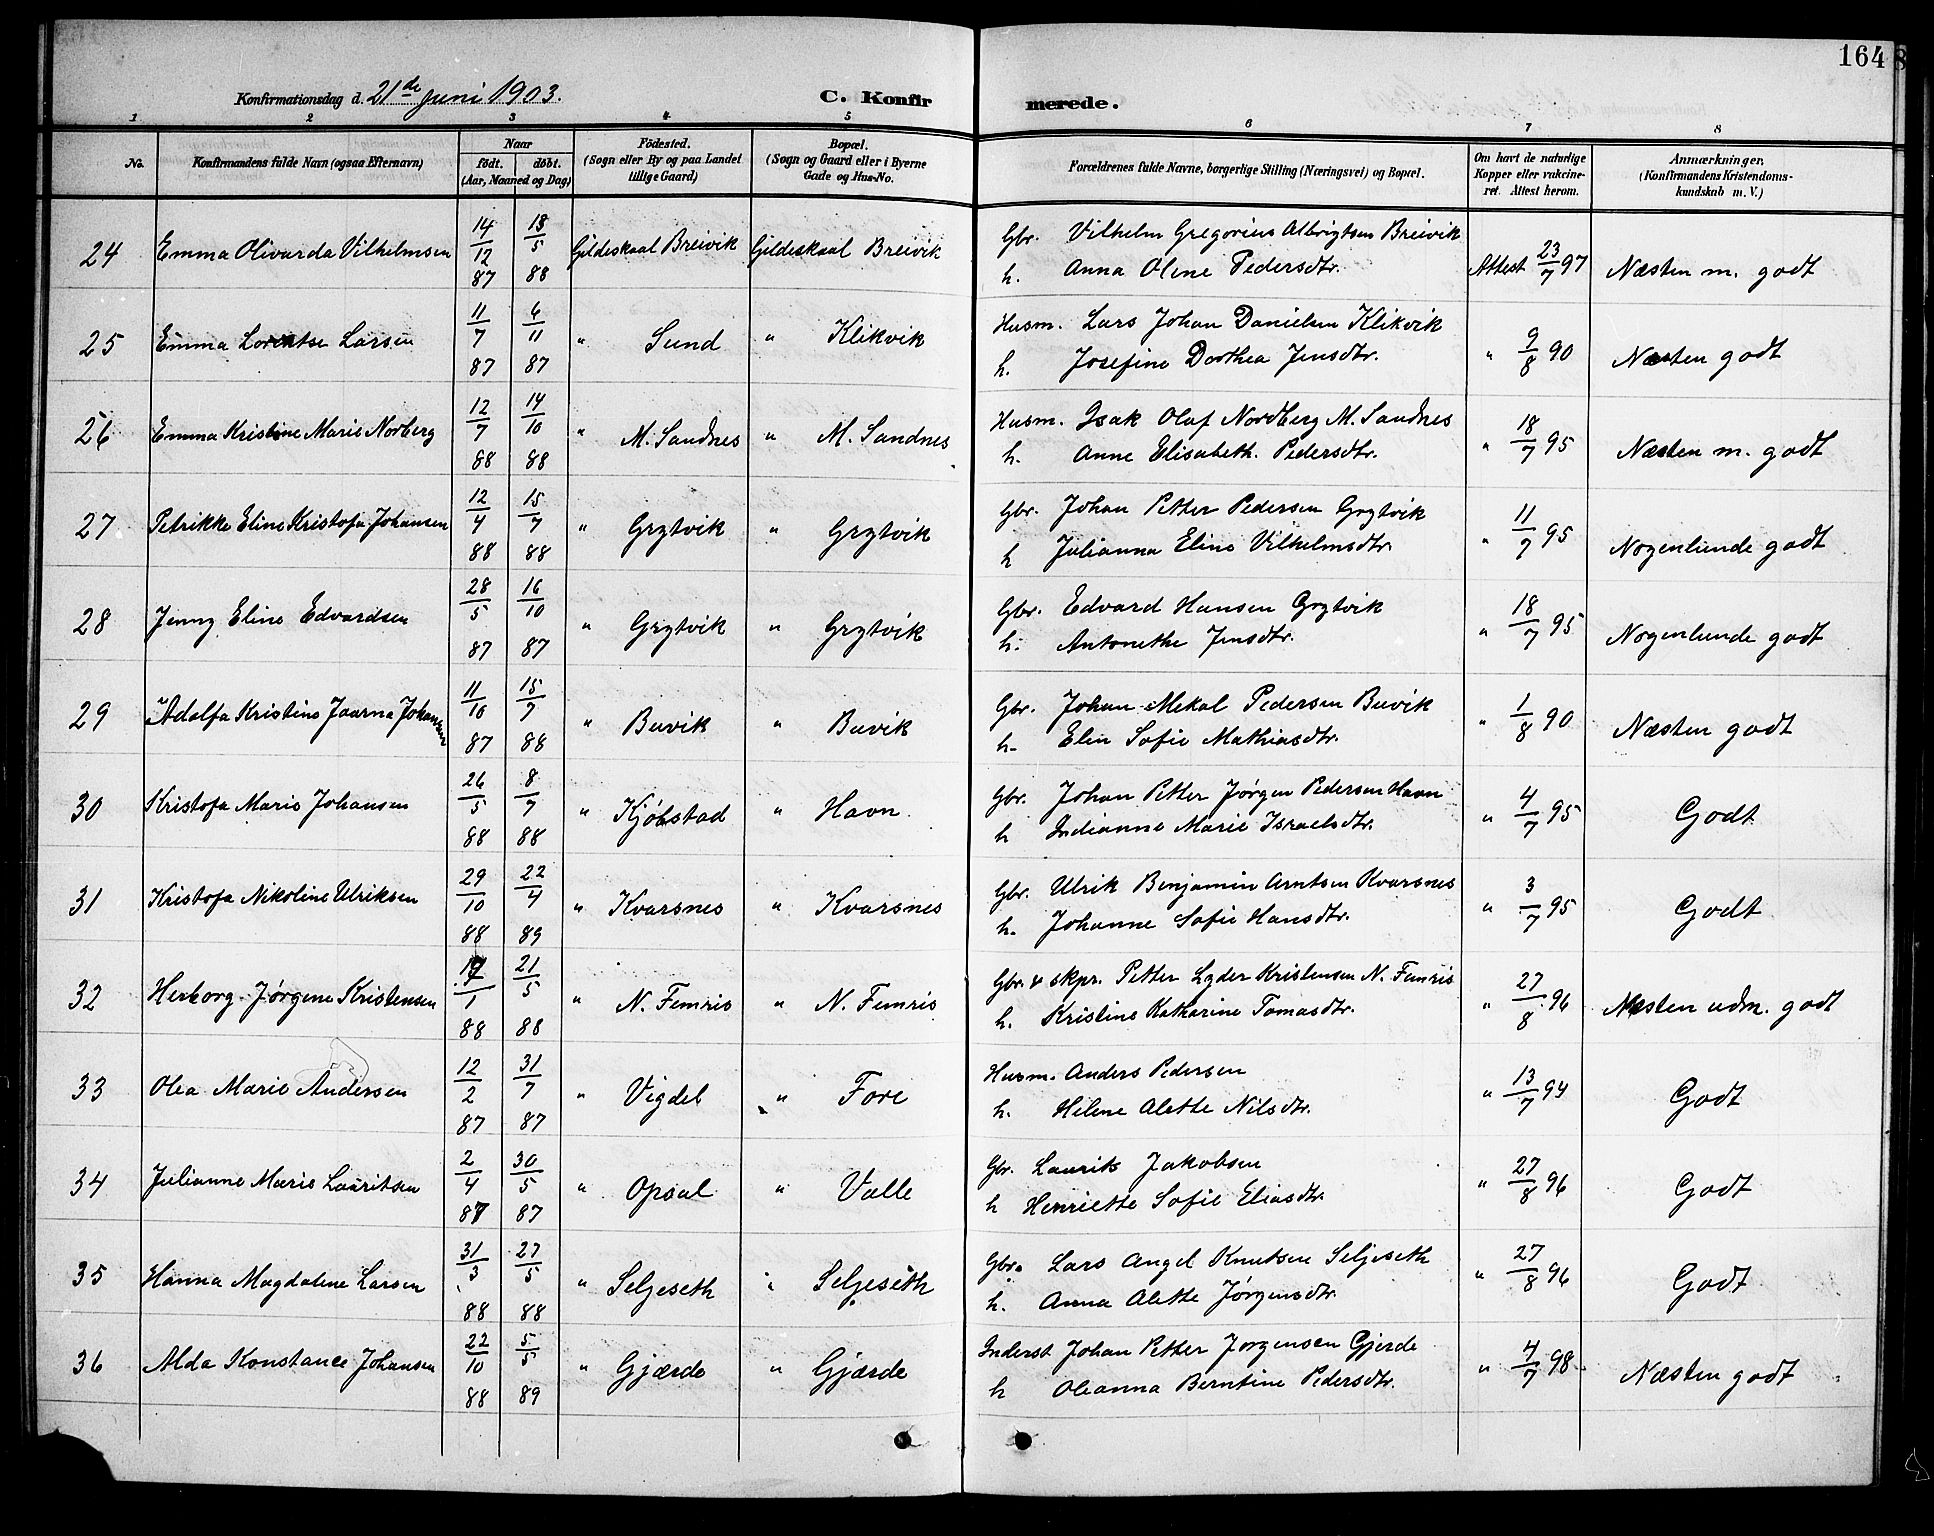 164
Konfirmationsdag d. 21de juni 1903. C. Konfirmerede.
1 2 3 4 5 6 7 8
No. Konfirmandens fulde Navn (ogsaa Efternavn) Naar født. døbt. (Aar, Maaned og Dag) Fødested. (Sogn eller By og paa Landet tillige Gaard) Bopæl. (Sogn og Gaard eller i Byerne Gade og Hus-No. Forældrenes fulde Navne, borgerlige Stilling (Næringsvei) og Bopæl. Om havt de naturlige Kopper eller vakcineret. Attest herom. Anmærkninger. (Konfirmandens Kristendomskundskab m. V.)
24 Emma Olivarda Vilhelmsen 14/12 87 13/5 88 Gildeskaal Breivik Gildeskaal Breivik Gbr. Vilhelm Gregorius Albrigtsen Breivik
h. Anna Oline Pedersdtr. Attest 23/7 97 Næsten m. godt
25 Emma Lorentse Larsen 11/7 87 6/11 87 " Sund " Klikvik Husm. Lars Johan Danielsen Klikvik
h. Josefine Dorthea Jensdtr. " 9/8 90 Næsten godt
26 Emma Kristine Marie Norberg 12/7 88 14/10 88 " M. Sandnes " M. Sandnes Husm. Isak Olaf Nordberg M. Sandnes
h. Anne Elisabeth. Pedersdtr. " 18/7 95 Næsten m. godt
27 Petrikke Eline Kristofa Johansen 12/4 88 15/7 88 " Grytvik " Grytvik Gbr. Johan Petter Pedersen Grytvik
h Julianna Eline Vilhelmsdtr. " 11/7 95 Nogenlunde godt
28 Jenny Eline Edvardsen 28/5 87 16/10 87 " Grytvik " Grytvik Gbr. Edvard Hansen Grytvik
h. Antonethe Jensdtr. " 18/7 95 Nogenlunde godt
29 Adolfa Kristine Jaarna Johansen 11/10 87 15/7 88 " Buvik " Buvik Gbr. Johan Mekal Pedersen Buvik
h. Elen Sofie Mathiasdtr. " 1/8 90 Næsten godt
30 Kristofa Marie Johansen 26/5 88 8/7 88 " Kjøbstad " Havn. Gbr. Johan Petter Jørgen Pedersen Havn
h Indianne Marie Israelsdtr. " 4/7 95 Godt
31 Kristofa Nikoline Ulriksen 29/10 88 22/4 89 " Kvarsnes " Kvarsnes Gbr. Ulrik Benjamin Arntsen Kvarsnes
h. Johanne Sofie Hansdtr. " 3/7 95 Godt
32 Herborg Jørgene Kristensen 17/1 88 21/5 88 " N. Femris " N. Femris Gbr. & skpr. Petter Lyder Kristensen N. Femris
h. Kristine Katharine Tomasdtr. " 27/8 96 Næsten udm. godt
33 Olea Marie Andersen 12/2 87 31/7 87 " Vigdel " Fore Husm. Anders Pedersen
h. Heline Alette Nilsdtr. " 13/7 94 Godt
34 Julianne Marie Lauritsen 2/4 87 30/5 87 " Opsal " Valle Gbr. Laurits Jakobsen
h Henriette Sofie Eliasdtr. " 27/8 96 Godt
35 Hanna Magdalene Larsen 31/3 88 27/5 88 " Seljeseth " Seljeseth Gbr. Lars Angel Knutsen Seljeseth
h. Anna Alette Jørgensdtr. " 27/8 96 Godt
36 Alda Konstance Johansen 22/10 88 5/5 89 " Gjærde " Gjærde Inderst Johan Petter Jørgensen Gjerde
h Oleanna Berntine Pedersdtr. " 4/7 98 Næsten godt